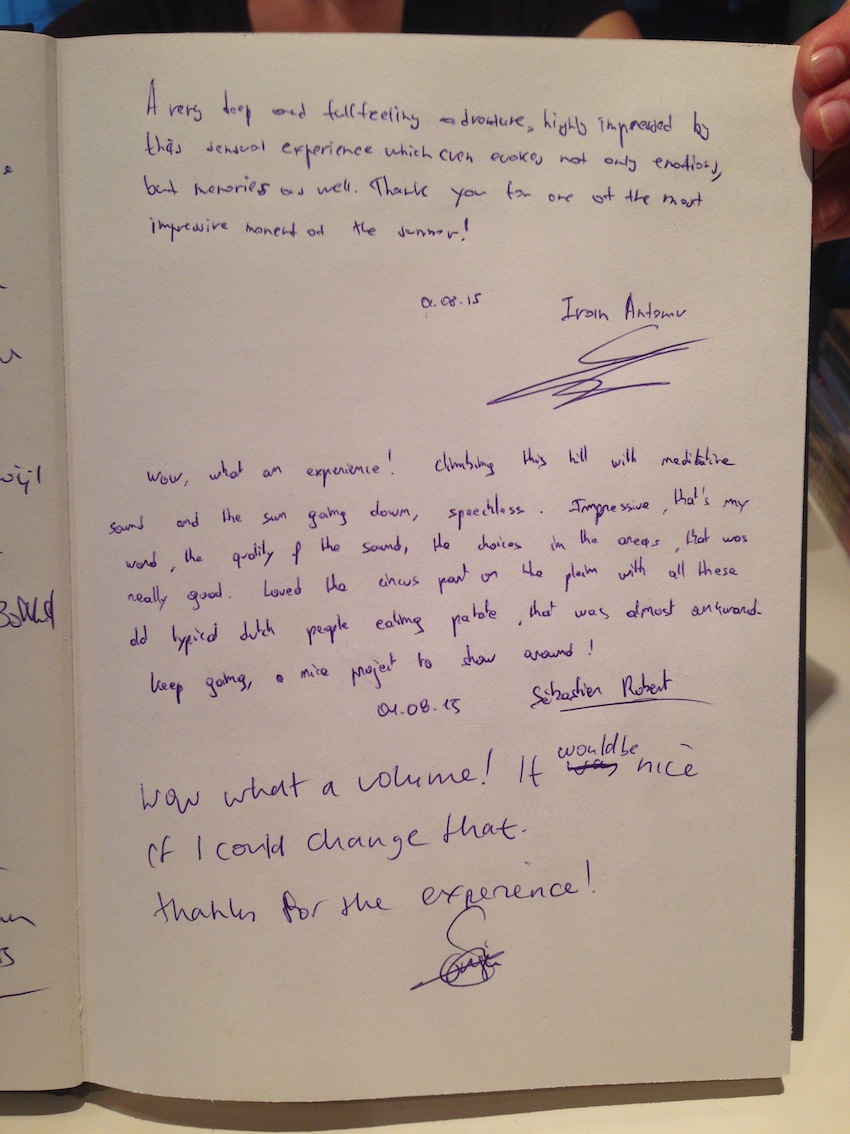 A very deep and fullfeeling adventure, highly impressed by
this sensual experience which even evokes not only emotions,
but memories as well. Thank you for one of the most
impressive moment of the summer!
01.08.15
Wow, what an experience! Climbing this hill with meditative
sound and the sun going down, speechless. Impressive, that's my
word, the quality of the sound, the choices in the areas, that was
really good. Loved the circus part on the plain with all these
old typical dutch people eating patate, that was almost awkward.
Keep going, a nice project to show around!
01.08.15
Sébastien Robert
Wow what a volume! It would be nice
if I could change that.
thanks for the experience!